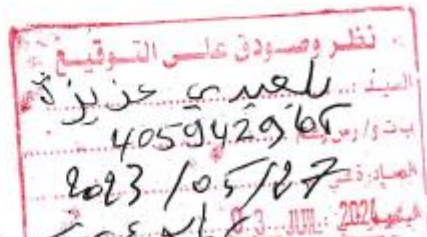 نظر وصودق على التوقيع
السيد: بلعيدي عزيزة
ب ت و/ رس رقم 405942966
الصادرة في 2023/05/27
03 JUIL 2024